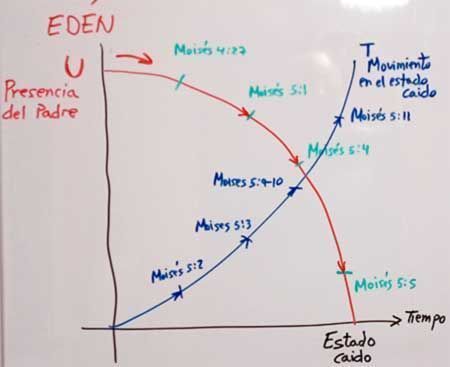 EDEN
U
Presencia
del Padre
Moisés 4:27
Moisés 5:1
T
Movimiento
en el estado
caido
Moisés 5:11
Moisés 5:4
Moises 5:9-10
Moises 5:3
Moisés 5:2
Moisés 5:5
Tiempo
Estado
caido